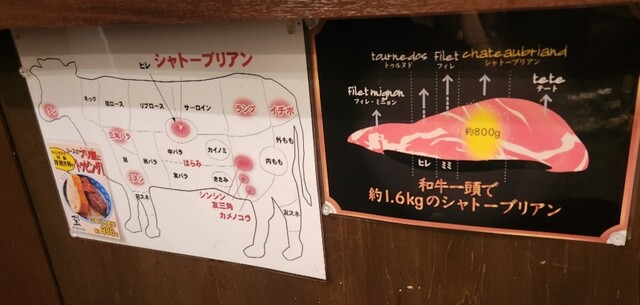 シャトーブリアン
ヒレ
ネック
肩ロース
リブロース
サーロイン
ランプ
イチボ
三角バラ
中バラ
カイノミ
はらみ
外もも
内もも
友バラ
ささみ
シンシン
友三角
カメノコウ
友スネ
tournedos
トゥルヌド
Filet
フィレ
chateaubriand
シャトーブリアン
Filet mignon
フィレ・ミニョン
tete
テート
約800g
ヒレ
ミミ
和牛一頭で
約1.6kgのシャトーブリアン